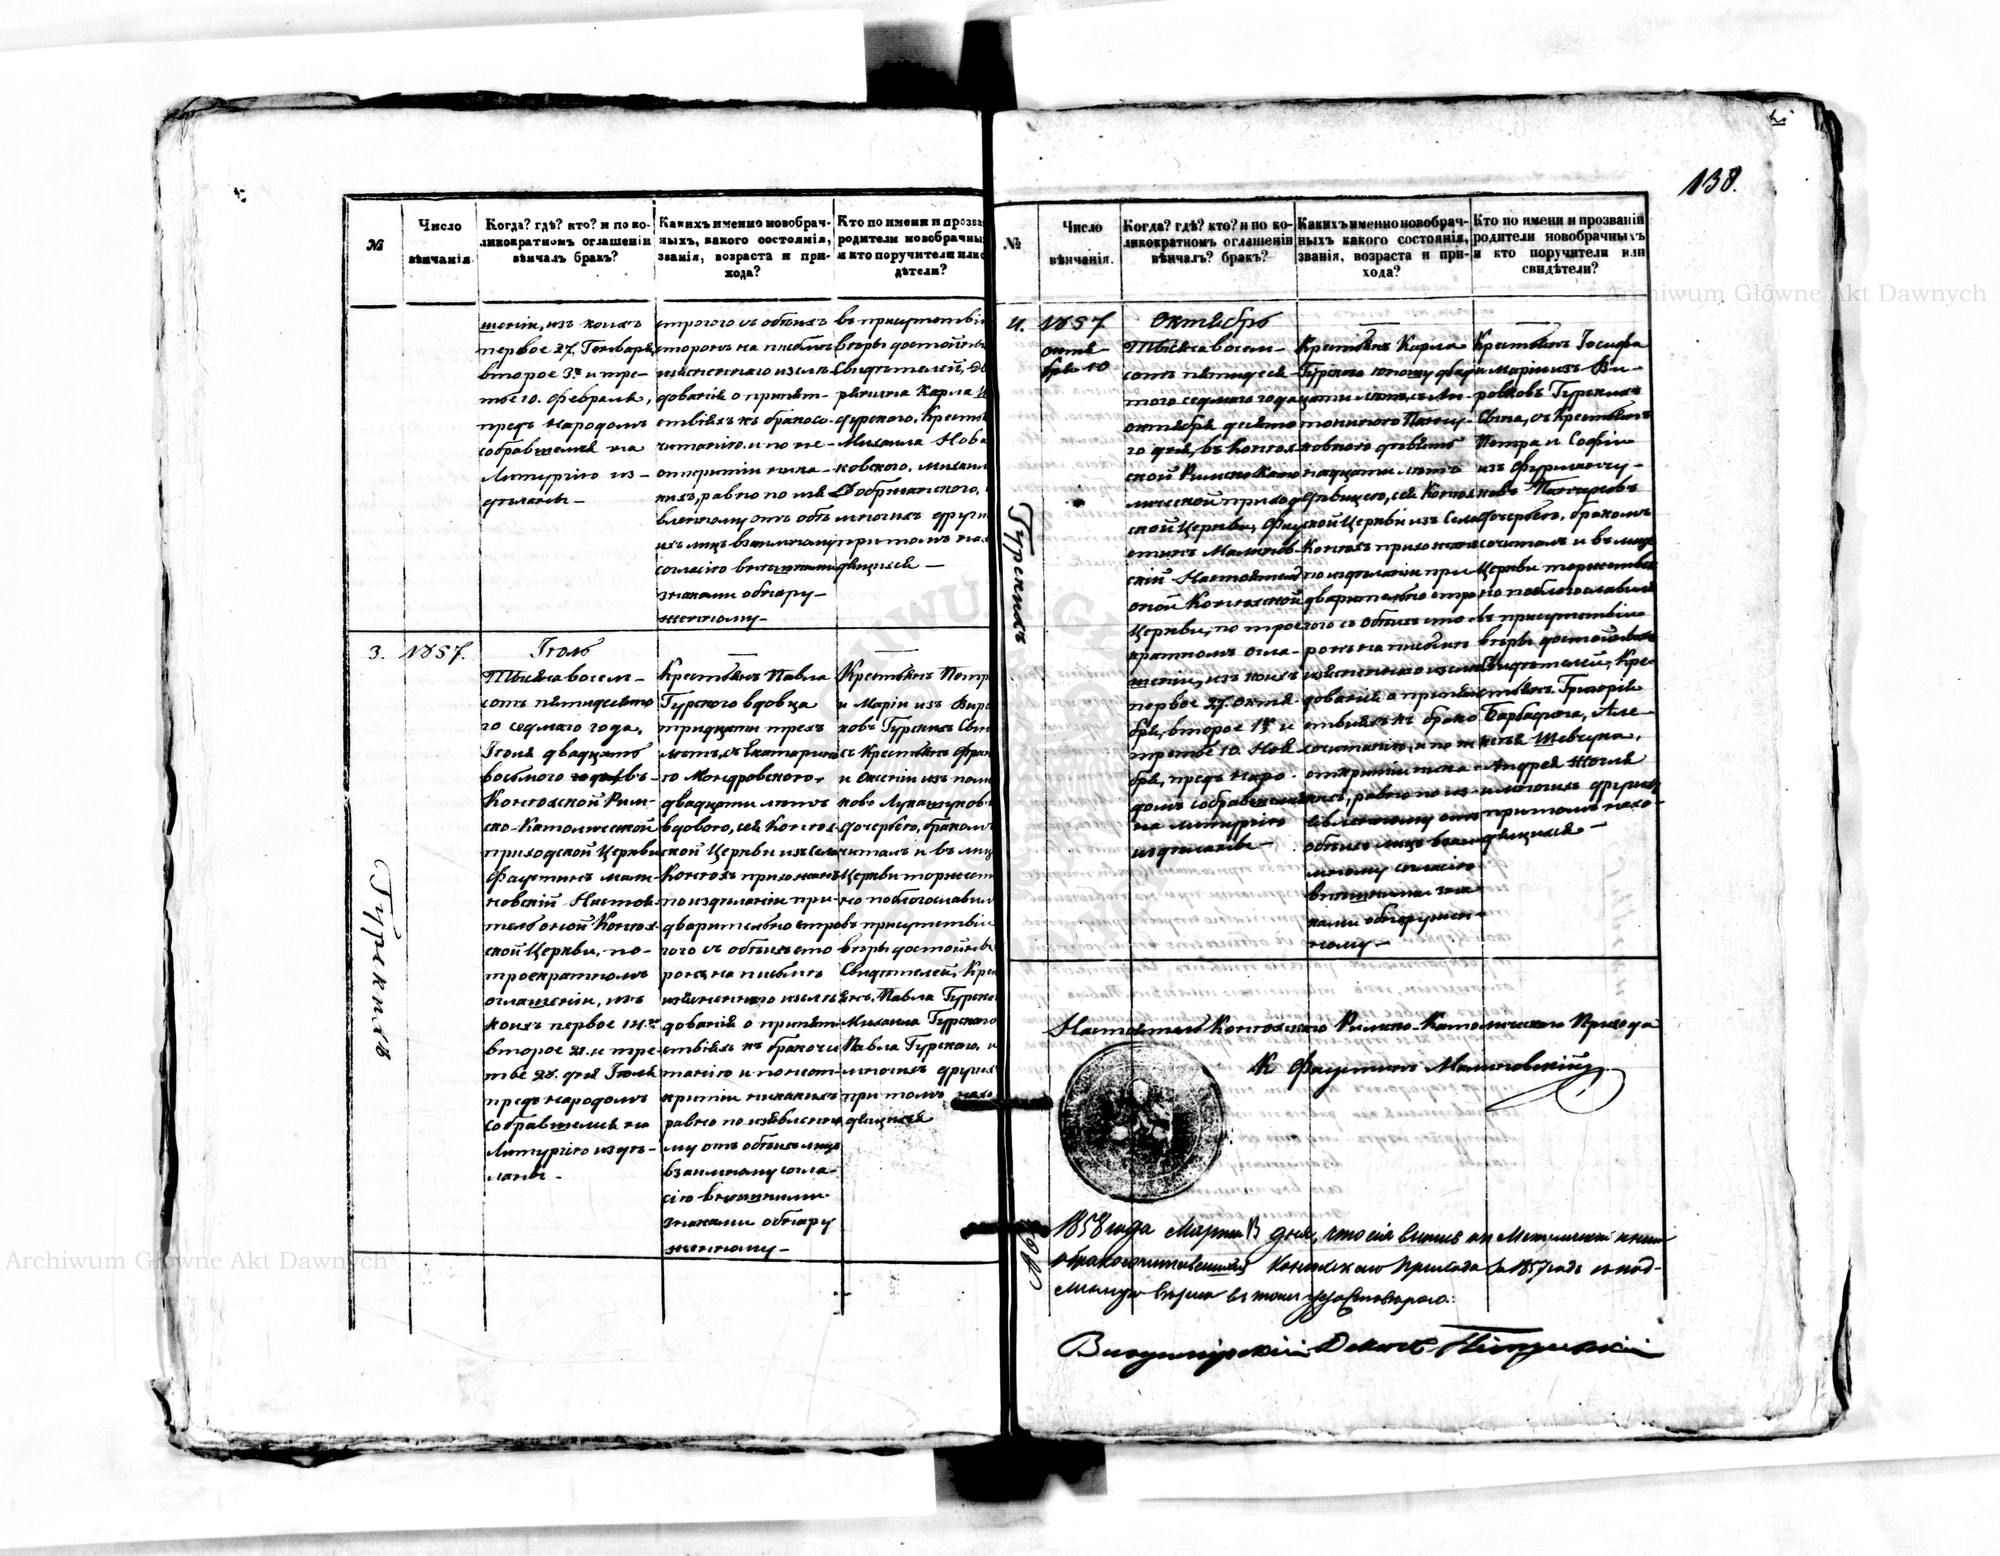 138.
№
Число
вѣнчанія.
Когда? гдѣ? кто? и по ко-
ликократномъ оглашеніи
вѣнчалъ бракъ?
Какихъ именно новобрач-
ныхъ, какого состоянія,
званія, возраста и при-
хода?
Кто по имени и прозва
родители новобрачны
и кто поручители или с
дѣтели?
шеніи, изъ коихъ
первое 27. Генваря,
второе 3го и тре-
тье 10. февраля,
предъ народомъ
собравшемся на
Литургію из-
дѣланы –
строгого съ обѣихъ
сторонъ на письмѣ
изясненнаго изслѣ-
дованія о препят-
ствіяхъ къ бракосо-
читанію и по не-
открытіи ника-
кихъ, равно по изя-
вленному отъ обѣ-
ихъ лицъ взаимному
согласію внѣшними
знаками обнару-
женному –
въ присутствіи
вѣры достойны
Свидѣтелей, Дв
рянина Карла
Михаила Нова
ковского, Михаил
Добрианского,
многихъ други
при томъ нах
дящихся –
3.
1857.
Гурскихъ
Іюль
Тысяча восем-
сотъ пятидесято
го седмаго года,
Іюля двадцать
восьмого дня въ
Конюхской Рим-
ско-Католической
приходской Церкви
Фаустинъ Мали-
новскій Настоя-
тель оной Конюх-
ской Церкви, по-
троекратномъ
оглашеніи, изъ
коихъ первое 14го
второе 21. и тре-
тье 28. дня Іюля
предъ народомъ
собравшемся на
Литургію издѣ-
ланы.
Крестьянъ Павла
Гурского вдовца
тридцати трехъ
лѣтъ, съ Екатериною
двадцати лѣтъ
вдовою, сея Конюх-
ской Церкви изъ Села
Конюхъ прихожанъ
по издѣланіи при-
дварительно стро-
гого съ обѣихъ сто
ронъ на письмѣ
изясненного изслѣ
дованія о препят-
ствіяхъ къ бракочи
танію и по неот-
крытіи никакихъ
равно по изявленно
му отъ обѣихъ лицъ
взаимному согла-
сію внѣшними
знаками обнару
женному –
Крестьянъ Петр
и Маріи изъ
ковъ Гурскихъ Сын
съ Крестьянъ Фран
ково Лукашуков
дочерью, бракомъ
читалъ и въ лиц
Церкви торжест
но поблогославил
въ присутствіи
вѣры достойны
Свидѣтелей, Кре
янъ. Павла Гурско
Михаила Гурского
Павла Гурского, и
многихъ других
при томъ нахо
дящихся
№
Число
вѣнчанія.
Когда? гдѣ? кто? и по ко-
ликократномъ оглашеніи
вѣнчалъ? бракъ?
Какихъ именно новобрач-
ныхъ какого состоянія,
званія, возраста и при-
хода?
Кто по имени и прозваніи
родители новобрачныхъ
и кто поручители или
свидѣтели?
4.
1857
октя-
бря 10
Гурскихъ
Октябрь
Тысяча восем-
сотъ пятидеся-
того седмаго года
октября десято
го дня, въ Конюх-
ской Римско Като
лической приход
ской Церкви, Фау
стинъ Малинов-
скій Настоятель
оной Конюхской
Церкви, по трое-
кратномъ огла-
шеніи, изъ коихъ
первое 27. Октя-
бря, второе 1го и
третье 10. Ноя
бря, предъ наро-
домъ собравшемся
на литургію
издѣланы –
Крестьянъ Карла
Гурского юношу двад
цати лѣтъ, съ Ан-
ковною девят
надцати лѣтъ
дѣвицею, сея Конюх
ской Церкви изъ Села
Конюхъ прихожанъ
по издѣланіи при-
дварительно стро
гого съ обѣихъ сто-
ронъ на письмѣ
изясненного изслѣ
дованія о препят
ствіяхъ къ брако
сочитанію, и по не
открытіи ника-
кихъ, равно по из-
явленному отъ
обѣихъ лицъ взаи
мному согласію
внѣшними зна
ками обнаружен-
ному –
Крестьянъ Іосифа
и Маріи изъ Ви-
ровковъ Гурскихъ
Сына, съ Крестьянъ
Петра и Софіи
изъ Фурманчу-
ковъ
дочерью, бракомъ
сочиталъ и въ лицѣ
Церкви торжествен
но поблогославилъ
въ присутствіи
вѣры достойныхъ
Свидѣтелей, Кре-
стьянъ. Григорія
Барбадюга, Але-
ксѣя Шевчука,
Андрея Жогля
и многихъ другихъ
при томъ нахо-
дящихся –
Настоятель Конюхского Римско-Католического Прихода
К Фаустинъ Малиновскій
1858 года Марта 13 дня, что сія выпись изъ Метрической книги
о бракосочитавшихся Конюхского Прихода за 1857 годъ съ под-
линною вѣрна въ томъ удостовѣряю:
Владимірскій Деканъ
Archiwum Główne Akt Dawnych
Archiwum Główne Akt Dawnych